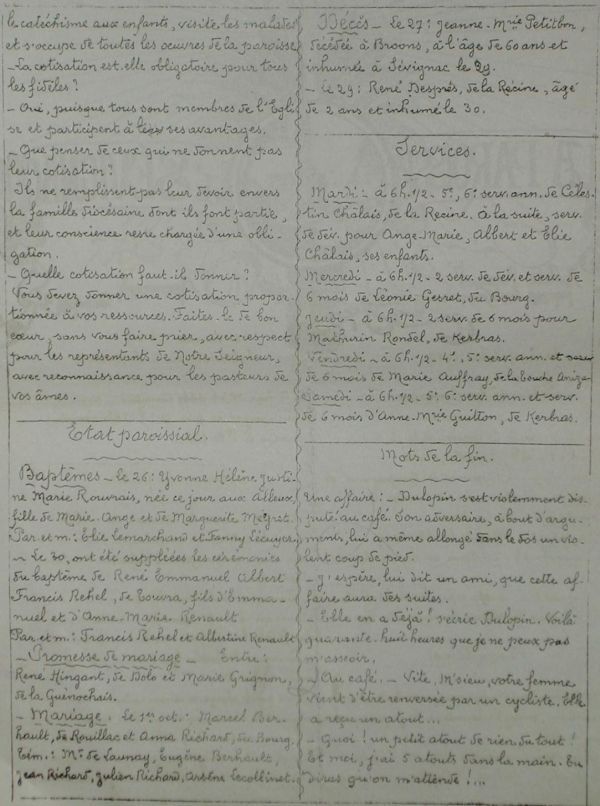 le catéchisme aux enfants, visite les malades
et s'occupe de toutes les œuvres de la paroisse
- La cotisation est-elle obligatoire pour tous
les fidèles?
- Oui, puisque tous sont membres de l'Egli-
se et participent à ses avantages.
- Que penser de ceux qui ne donnent pas
leur cotisation?
Ils ne remplissent pas leur devoir envers
la famille diocésaine dont ils font partie,
et leur conscience reste chargée d'une obli-
gation.
- Quelle cotisation faut-il donner?
Vous devez donner une cotisation propor-
tionnée à vos ressources. Faites-le de bon
cœur, sans vous faire prier, avec respect
pour les représentants de Notre Seigneur,
avec reconnaissance pour les pasteurs de
vos âmes.
Etat paroissial.
Baptêmes - le 26: Yvonne Hélène Justi-
ne Marie Rouvrais, née ce jour aux Alleux,
fille de Marie-Ange et de Marguerite
Par. et m: Elie Lemarchand et Fanny Lécuyer.
- Le 30, ont été suppléées les cérémonies
du baptême de René Emmanuel Albert
Francis Rehel, de Couvra, fils d'Emma-
nuel et d'Anne-Marie Renault
Par. et m: Francis Rehel et Albertine Renault
- Promesse de mariage - Entre:
René Hingant, de Dolo et Marie Grignon,
de la Guénochais.
- Mariage. Le 1er oct: Marcel Ber-
hault, de Rouillac et Anna Richard, du Bourg.
Tém.: Mr de Launay, Eugène Berhault,
Jean Richard, Julien Richard, Arsène Lecollinet.
Décès - Le 27: Jeanne-Mrie Petitbon,
décédée à Broons, à l'âge de 60 ans et
inhumée à Sévignac le 29.
- Le 29: René Després, de la Récine, âgé
de 2 ans et inhumé le 30.
Services.
Mardi: à 6h.1/2 - 5e, 6e serv. ann. de Céles-
tin Châlais, de la Récine. à la suite, serv.
de dév. pour Ange-Marie, Albert et Elie
Châlais, ses enfants.
Mercredi - à 6h.1/2 - 2 serv. de dév. et serv. de
6 mois de Léonie Gesret, du Bourg.
Jeudi - à 6h.1/2 - 2 serv. de 6 mois pour
Mathurin Rondel, de Kerbras.
Vendredi - à 6h.1/2 - 4e, 5e serv. ann. et
de 6 mois de Marie Auffray, de la
Samedi - à 6h.1/2 - 5e 6e serv. ann. et serv.
de 6 mois d'Anne-Mrie Guitton, de Kerbras.
Mots de la fin.
Une affaire: - Dulopin s'est violemment dis-
puté au café. Son adversaire, à bout d'argu-
ments, lui a même allongé dans le dos un vio-
lent coup de pied.
- J'espère, lui dit un ami, que cette af-
faire aura des suites.
- Elle en a déjà! s'écrie Dulopin. Voilà
quarante-huit heures que je ne peux pas
m'asseoir.
- Au café. - Vite, M'sieu, votre femme
vient d'être renversée par un cycliste. Elle
a reçu un atout...
- Quoi! un petit atout de rien du tout!
Et moi, j'ai 5 atouts dans la main. Tu
diras qu'on m'attende!...